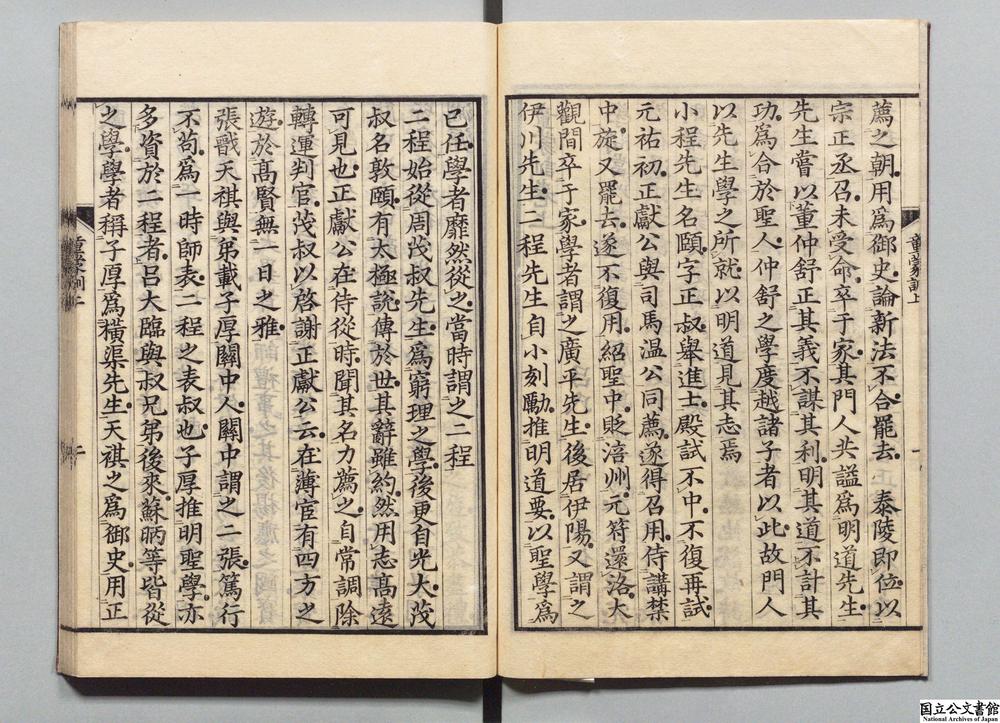 薦之朝用爲御史論新法不合罷去　泰陵即位以
宗正丞召未受命卒于家其門人共謚爲明道先生
先生嘗以董仲舒正其義不謀其利明其道不計其
功爲合於聖人仲舒之學度越諸子者以此故門人
以先生學之所就以明道見其志焉
小程先生名頤字正叔舉進士殿試不中不復再試
元祐初正獻公與司馬温公同薦遂得召用侍講禁
中旋又罷去遂不復用紹聖中貶涪州元符還洛大
觀間卒于家學者謂之廣平先生後居伊陽又謂之
伊川先生二程先生自小刻勵推明道要以聖學爲
童蒙訓上
一
己任學者靡然從之當時謂之二程
二程始從周茂叔先生爲窮理之學後更自光大茂
叔名敦頤有太極説傳於世其辭雖約然用志髙遠
可見也正獻公在侍從時聞其名力薦之自常調除
轉運判官茂叔以啓謝正獻公云在薄宦有四方之
遊於髙賢無一日之雅
張戩天祺與弟載子厚關中人關中謂之二張篤行
不苟爲一時師表二程之表叔也子厚推明聖學亦
多資於二程者呂大臨與叔兄弟後來蘇昞等皆從
之學學者稱子厚爲横渠先生天祺之爲御史用正
国立公文書館
National Archives of Japan